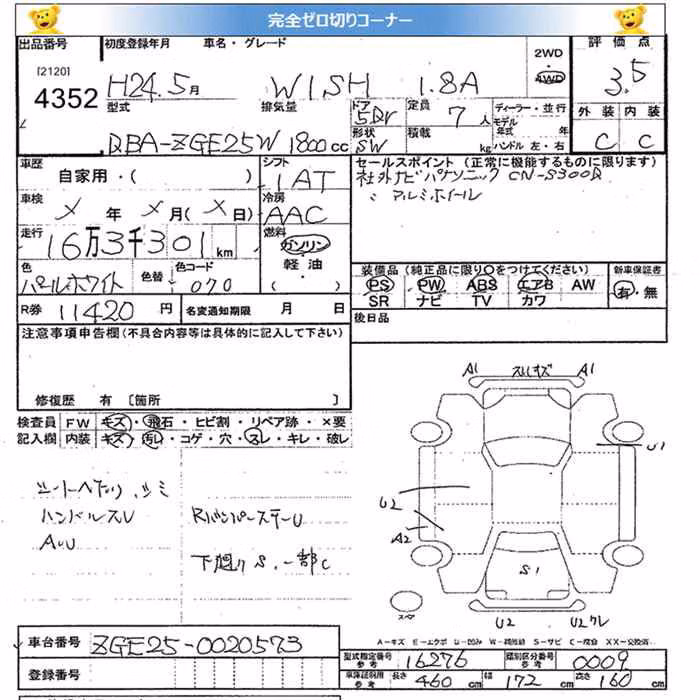 完全ゼロ切りコーナー
出品番号 初度登録年月 車名・グレード 2WD 評価点
[2120] 4352 H24.5月 WISH 1.8A 4WD 3.5
型式 排気量 ドア 5Dr 定員 7人 ディーラー・並行 外装 内装
DBA-ZGE25W 1800cc 形状 SW 積載 kg モデル年式 年 ハンドル 左・右 C C
車歴 シフト セールスポイント (正常に機能するものに限ります)
自家用・( ) IAT 社外ナビパナソニック CN-S300D
車検 冷房 アルミホイール
メ年メ月(メ日) AAC
走行 燃料
16万3千301km ガソリン
色 色替 色コード 軽油 装備品(純正品に限り○をつけてください) 新車保証書
パールホワイト 070 ( ) PS PW ABS エアB AW 有・無
R券 11420円 名変通知期限 月 日 SR ナビ TV カワ
注意事項申告欄(不具合内容等は具体的に記入して下さい) 後日品
修復歴 有 [箇所 ]
検査員 FW キズ・飛石・ヒビ割・リペア跡・×要
記入欄 内装 キズ・汚レ・コゲ・穴・スレ・キレ・破レ
シートヘタリ、シミ
ハンドルスレU
AUU
RバンパーステーU
下廻りS、一部C
A1 スリキズ A1
U1
U2
A2
S1
スペア
U2 U2ワレ
A-キズ E-エクボ U-凹み W-補修跡 S-サビ C-腐食 XX-交換済
車台番号 ZGE25-0020573
登録番号
型式指定番号 参考 16276 類別区分番号 参考 0009
車庫証明用 参考 長さ 460cm 幅 172cm 高さ 160cm